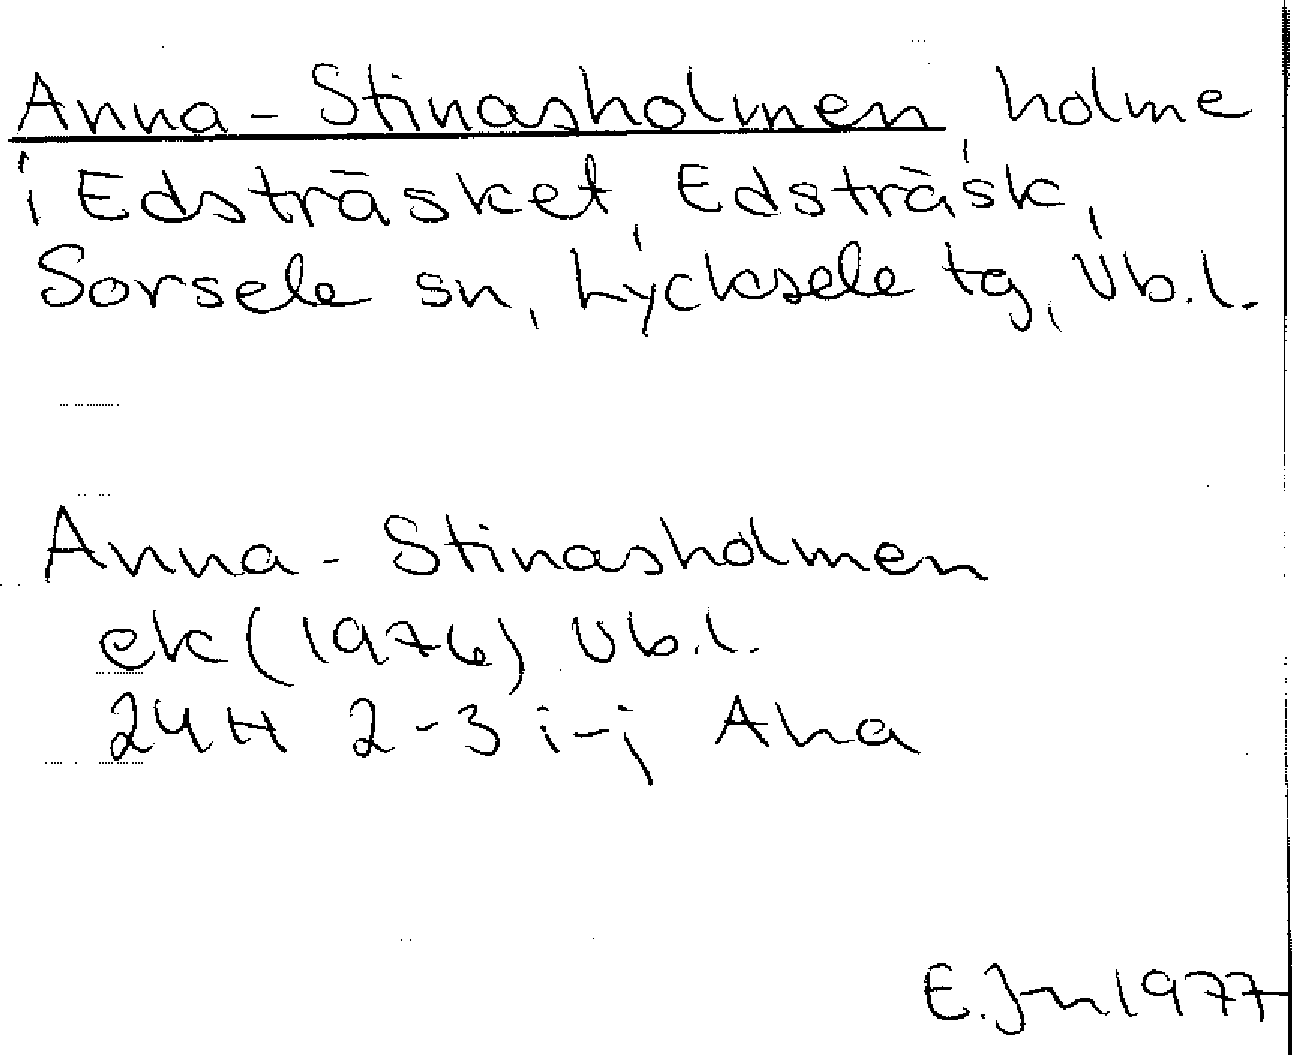 Anna-Stinasholmen, holme
i Edsträsket, Edsträsk,
Sorsele sn, Lycksele tg, Vb.l.
Anna-Stinasholmen
ek (1976) Vb.l.
24H 2-3 i-j Aha
E. Jn 1977